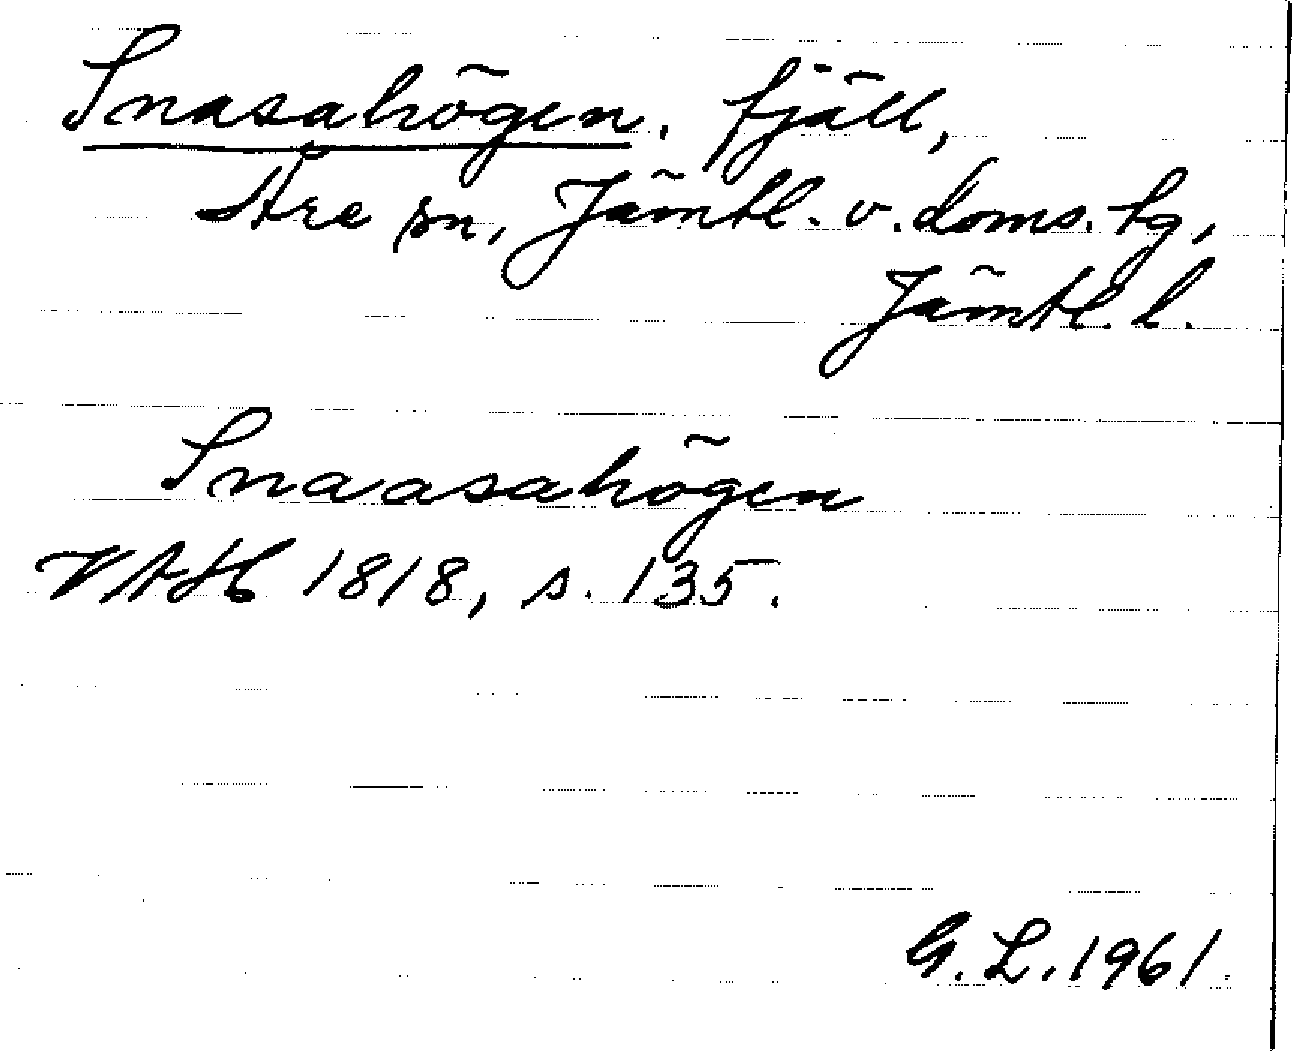 Snasahögen, fjäll,
Åre sn, Jämtl. v. doms. tg,
Jämtl. l.
Snaasahögen
VAH 1818, s. 135.
G. L. 1961